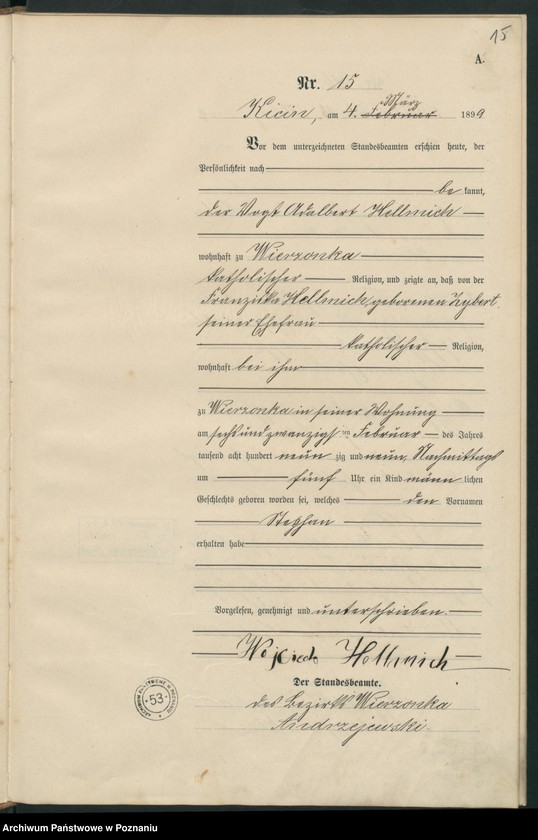 15
A.
Nr. 15
März
Kicin, am 4. Februar 1899
Vor dem unterzeichneten Standesbeamten erschien heute, der
Persönlichkeit nach
bekannt,
der Vogt Adalbert Hellmich
wohnhaft zu Wierzonka
katholischer Religion, und zeigte an, daß von der
Franziska Hellmich, geborenen Zybert
seiner Ehefrau
katholischer Religion,
wohnhaft bei ihm
zu Wierzonka in seiner Wohnung
am sechsundzwanzigsten Februar des Jahres
tausend acht hundert neunzig und neun, Nachmittags
um fünf Uhr ein Kind männlichen
Geschlechts geboren worden sei, welches den Vornamen
Stephan
erhalten habe
Vorgelesen, genehmigt und unterschrieben.
Wojciech Hellmich
Der Standesbeamte.
des Bezirks Wierzonka
Andrzejewski.
53
Archiwum Państwowe w Poznaniu